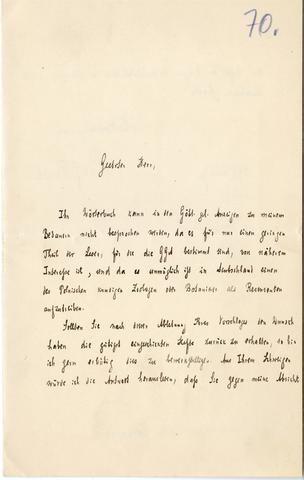 70.
Geehrter Herr,
Ihr Wörterbuch kann in den Gött. gel. Anzeigen zu meinem
Bedauern nicht besprochen werden, da es für nur einen geringen
Theil der Leser, für die die GgA bestimmt sind, von näherem
Interesse ist, und da es unmöglich ist in Deutschland einen
des Polnischen kundigen Zoologen oder Botaniker als Recensenten
aufzutreiben.
Sollten Sie nach dieser Ablehnung Ihres Vorschlages den Wunsch
haben die gütigst eingeschickten Hefte zurück zu erhalten, so bin
ich gern erbötig dies zu bewerkstelligen. Aus Ihrem Schweigen
würde ich die Antwort herauslesen, daß Sie gegen meine Absicht